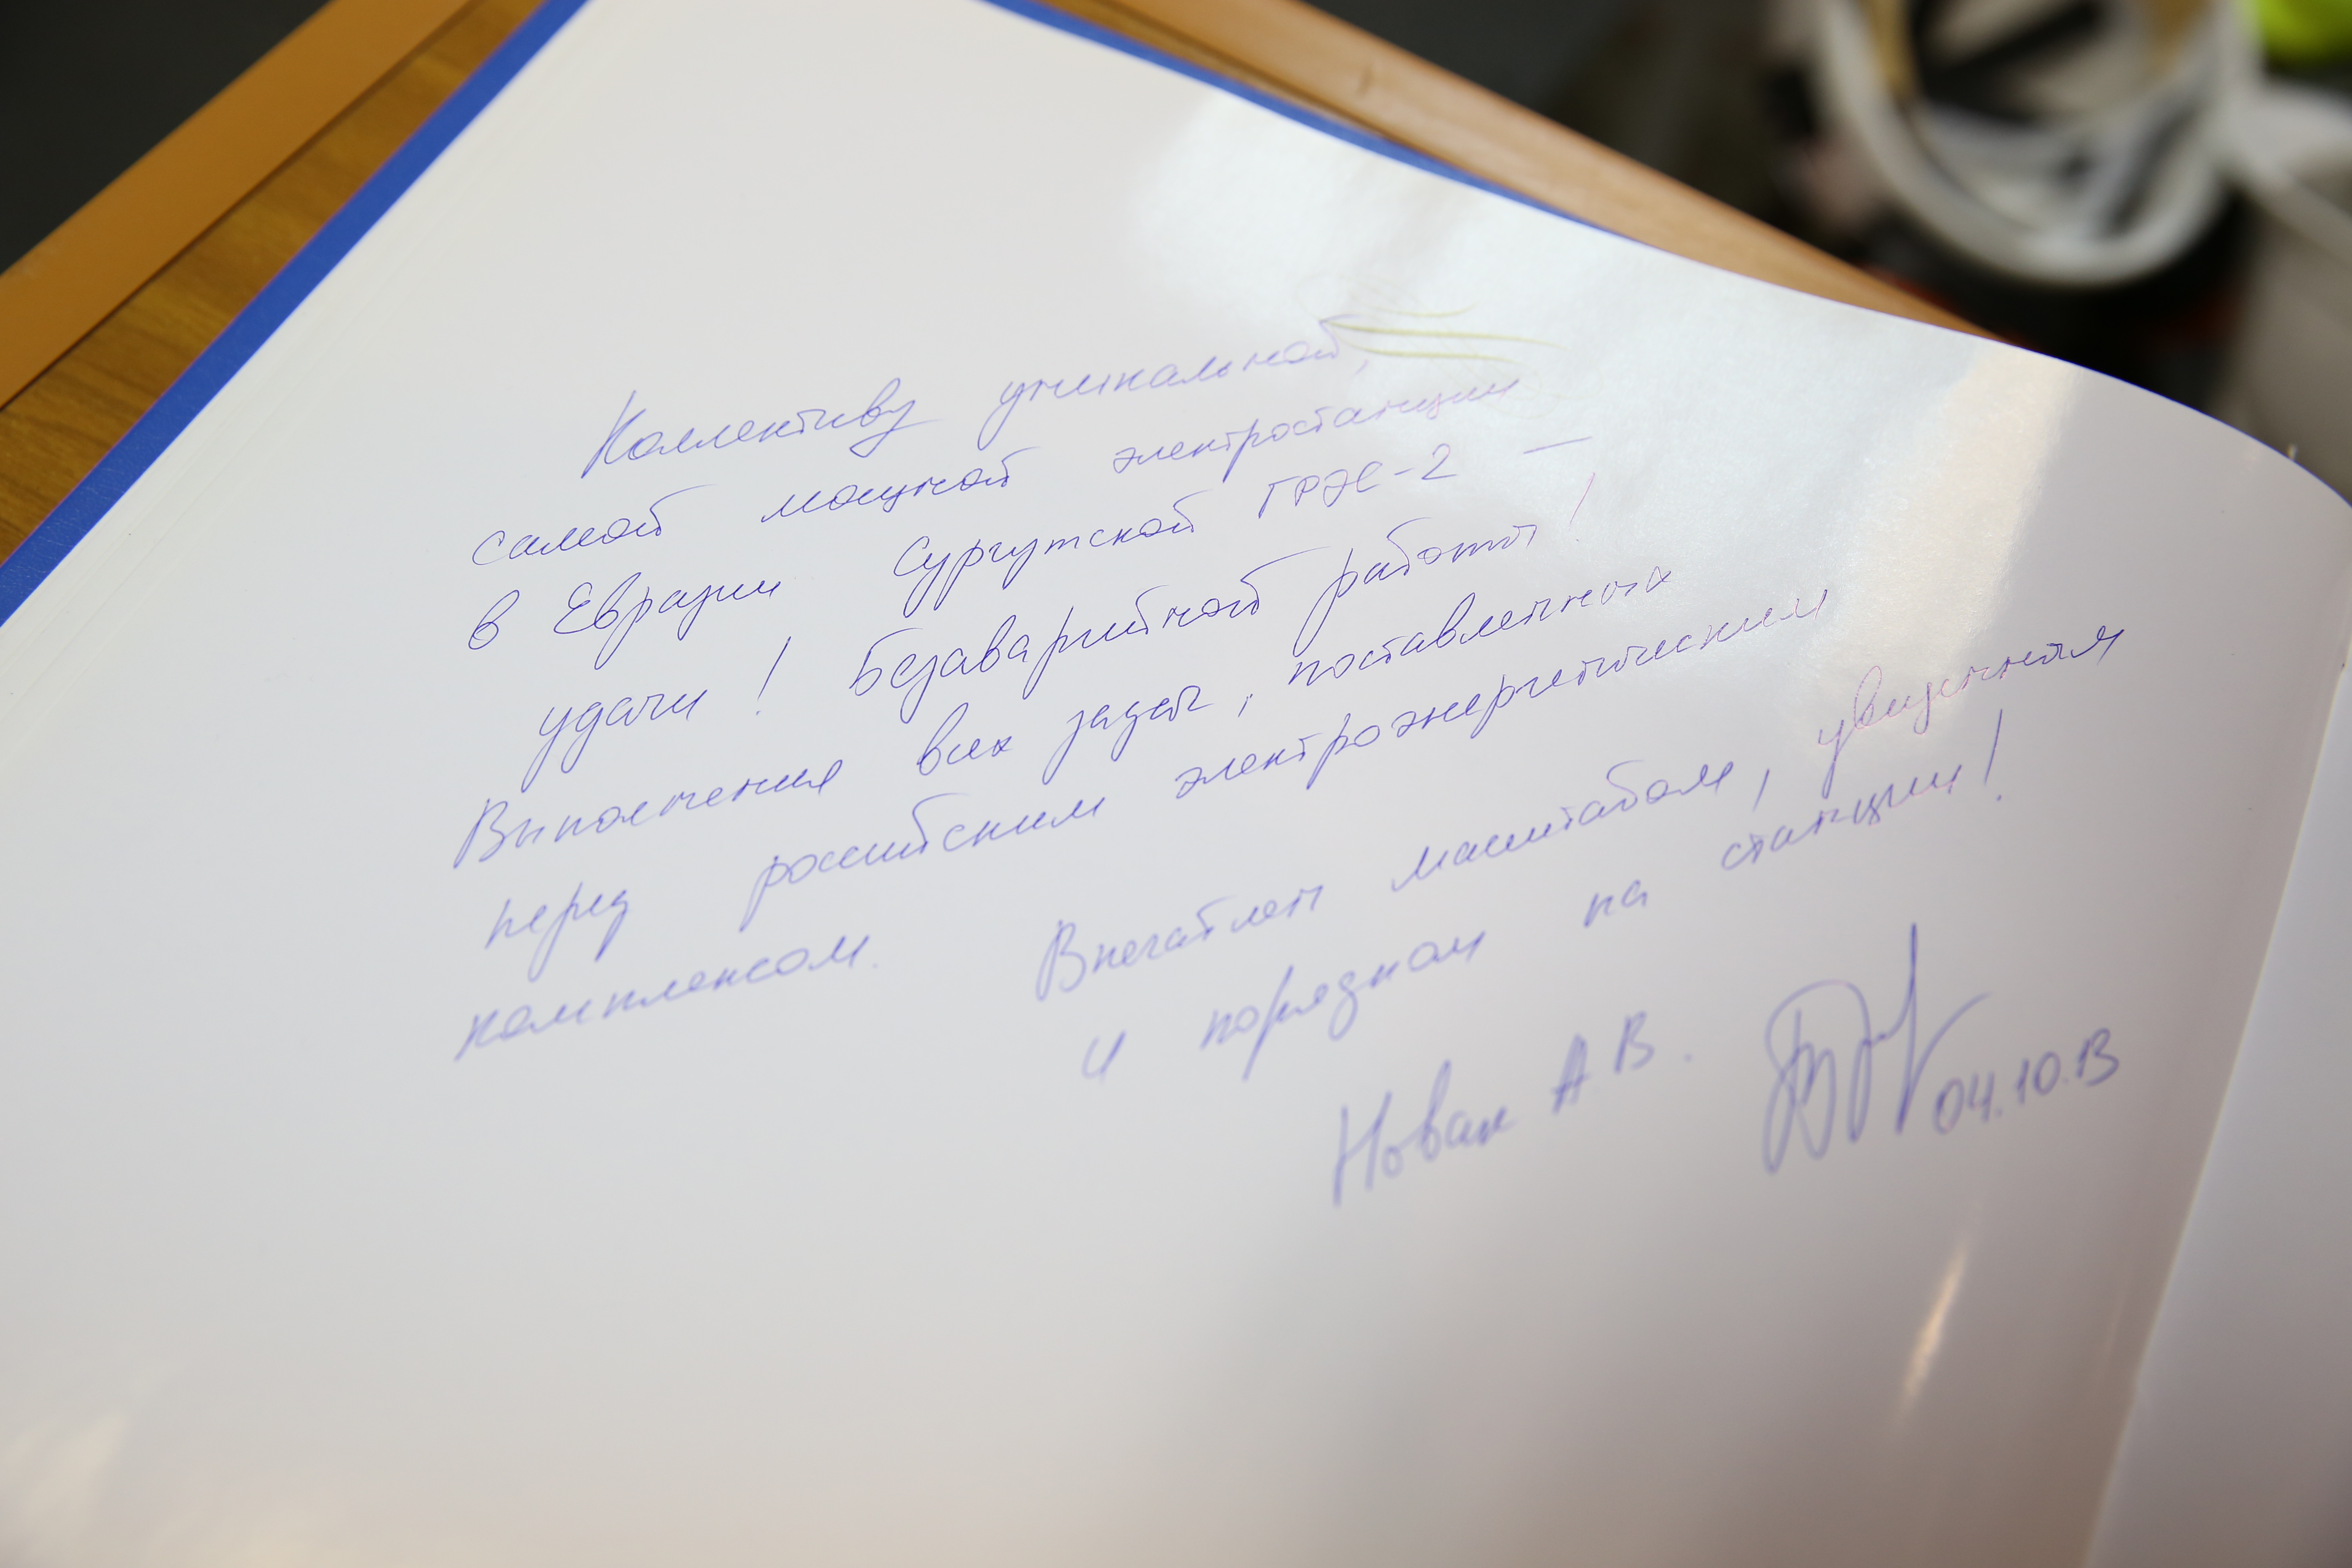 Коллективу уникальной,
самой мощной электростанции
в Евразии Сургутской ГРЭС-2 —
удачи! Безаварийной работы!
Выполнения всех задач, поставленных
перед российским электроэнергетическим
комплексом. Впечатлен масштабом, увиденная
и порядком на станции!
Новак А.В. 04.10.13